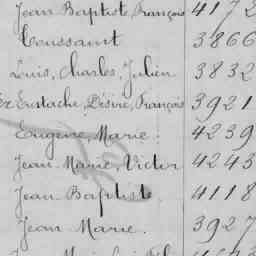 Jean Baptiste, François 4172
Toussaint 3866
Louis, Charles, Julien 3832
Eustache, Désiré, François 3921
Eugène, Marie. 4239
Jean Marie, Victor 4243
Jean Baptiste. 4118
Jean Marie. 3927